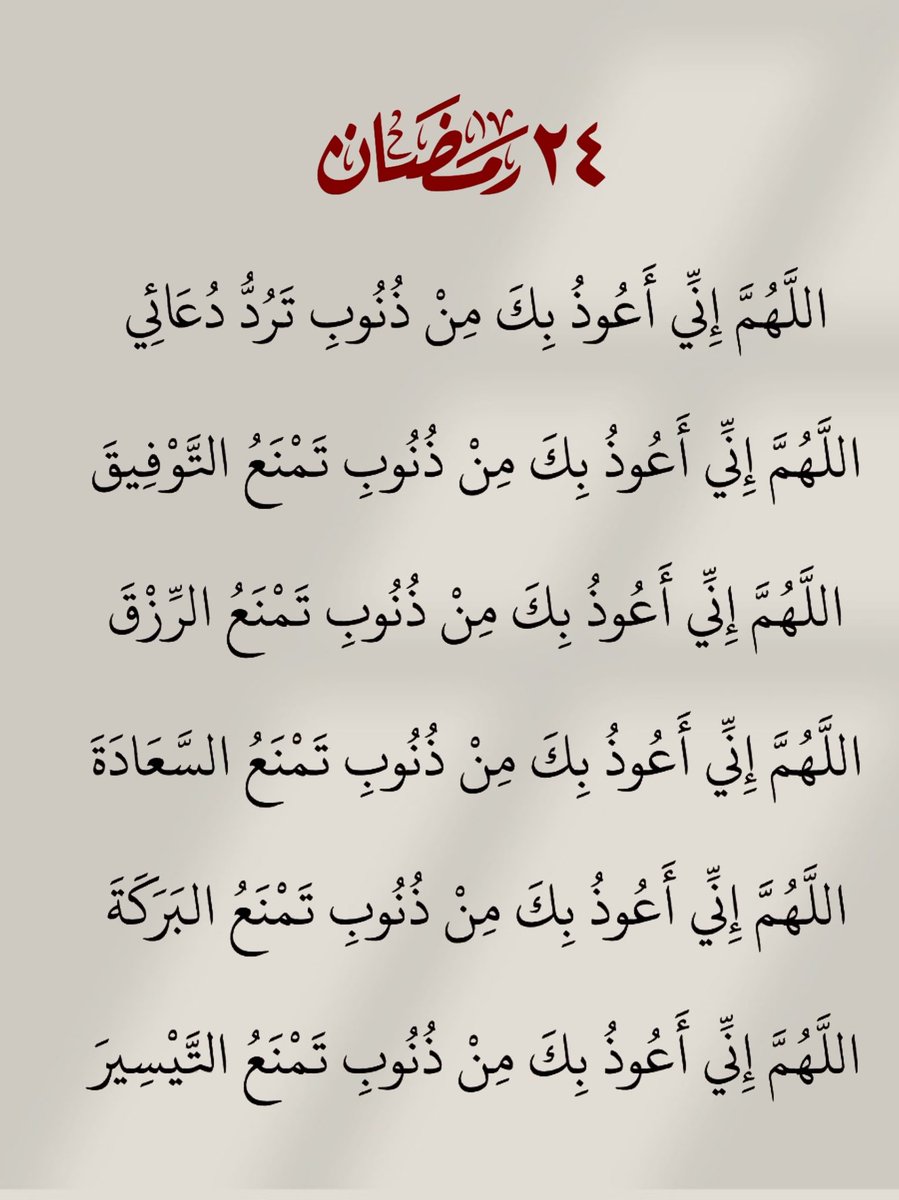 ٢٤ رمضان
اللَّهُمَّ إِنِّي أَعُوذُ بِكَ مِنْ ذُنُوبِ تَرُدُّ دُعَائِي
اللَّهُمَّ إِنِّي أَعُوذُ بِكَ مِنْ ذُنُوبِ تَمْنَعُ التَّوْفِيقَ
اللَّهُمَّ إِنِّي أَعُوذُ بِكَ مِنْ ذُنُوبِ تَمْنَعُ الرِّزْقَ
اللَّهُمَّ إِنِّي أَعُوذُ بِكَ مِنْ ذُنُوبِ تَمْنَعُ السَّعَادَةَ
اللَّهُمَّ إِنِّي أَعُوذُ بِكَ مِنْ ذُنُوبِ تَمْنَعُ البَرَكَةَ
اللَّهُمَّ إِنِّي أَعُوذُ بِكَ مِنْ ذُنُوبِ تَمْنَعُ التَّيْسِيرَ